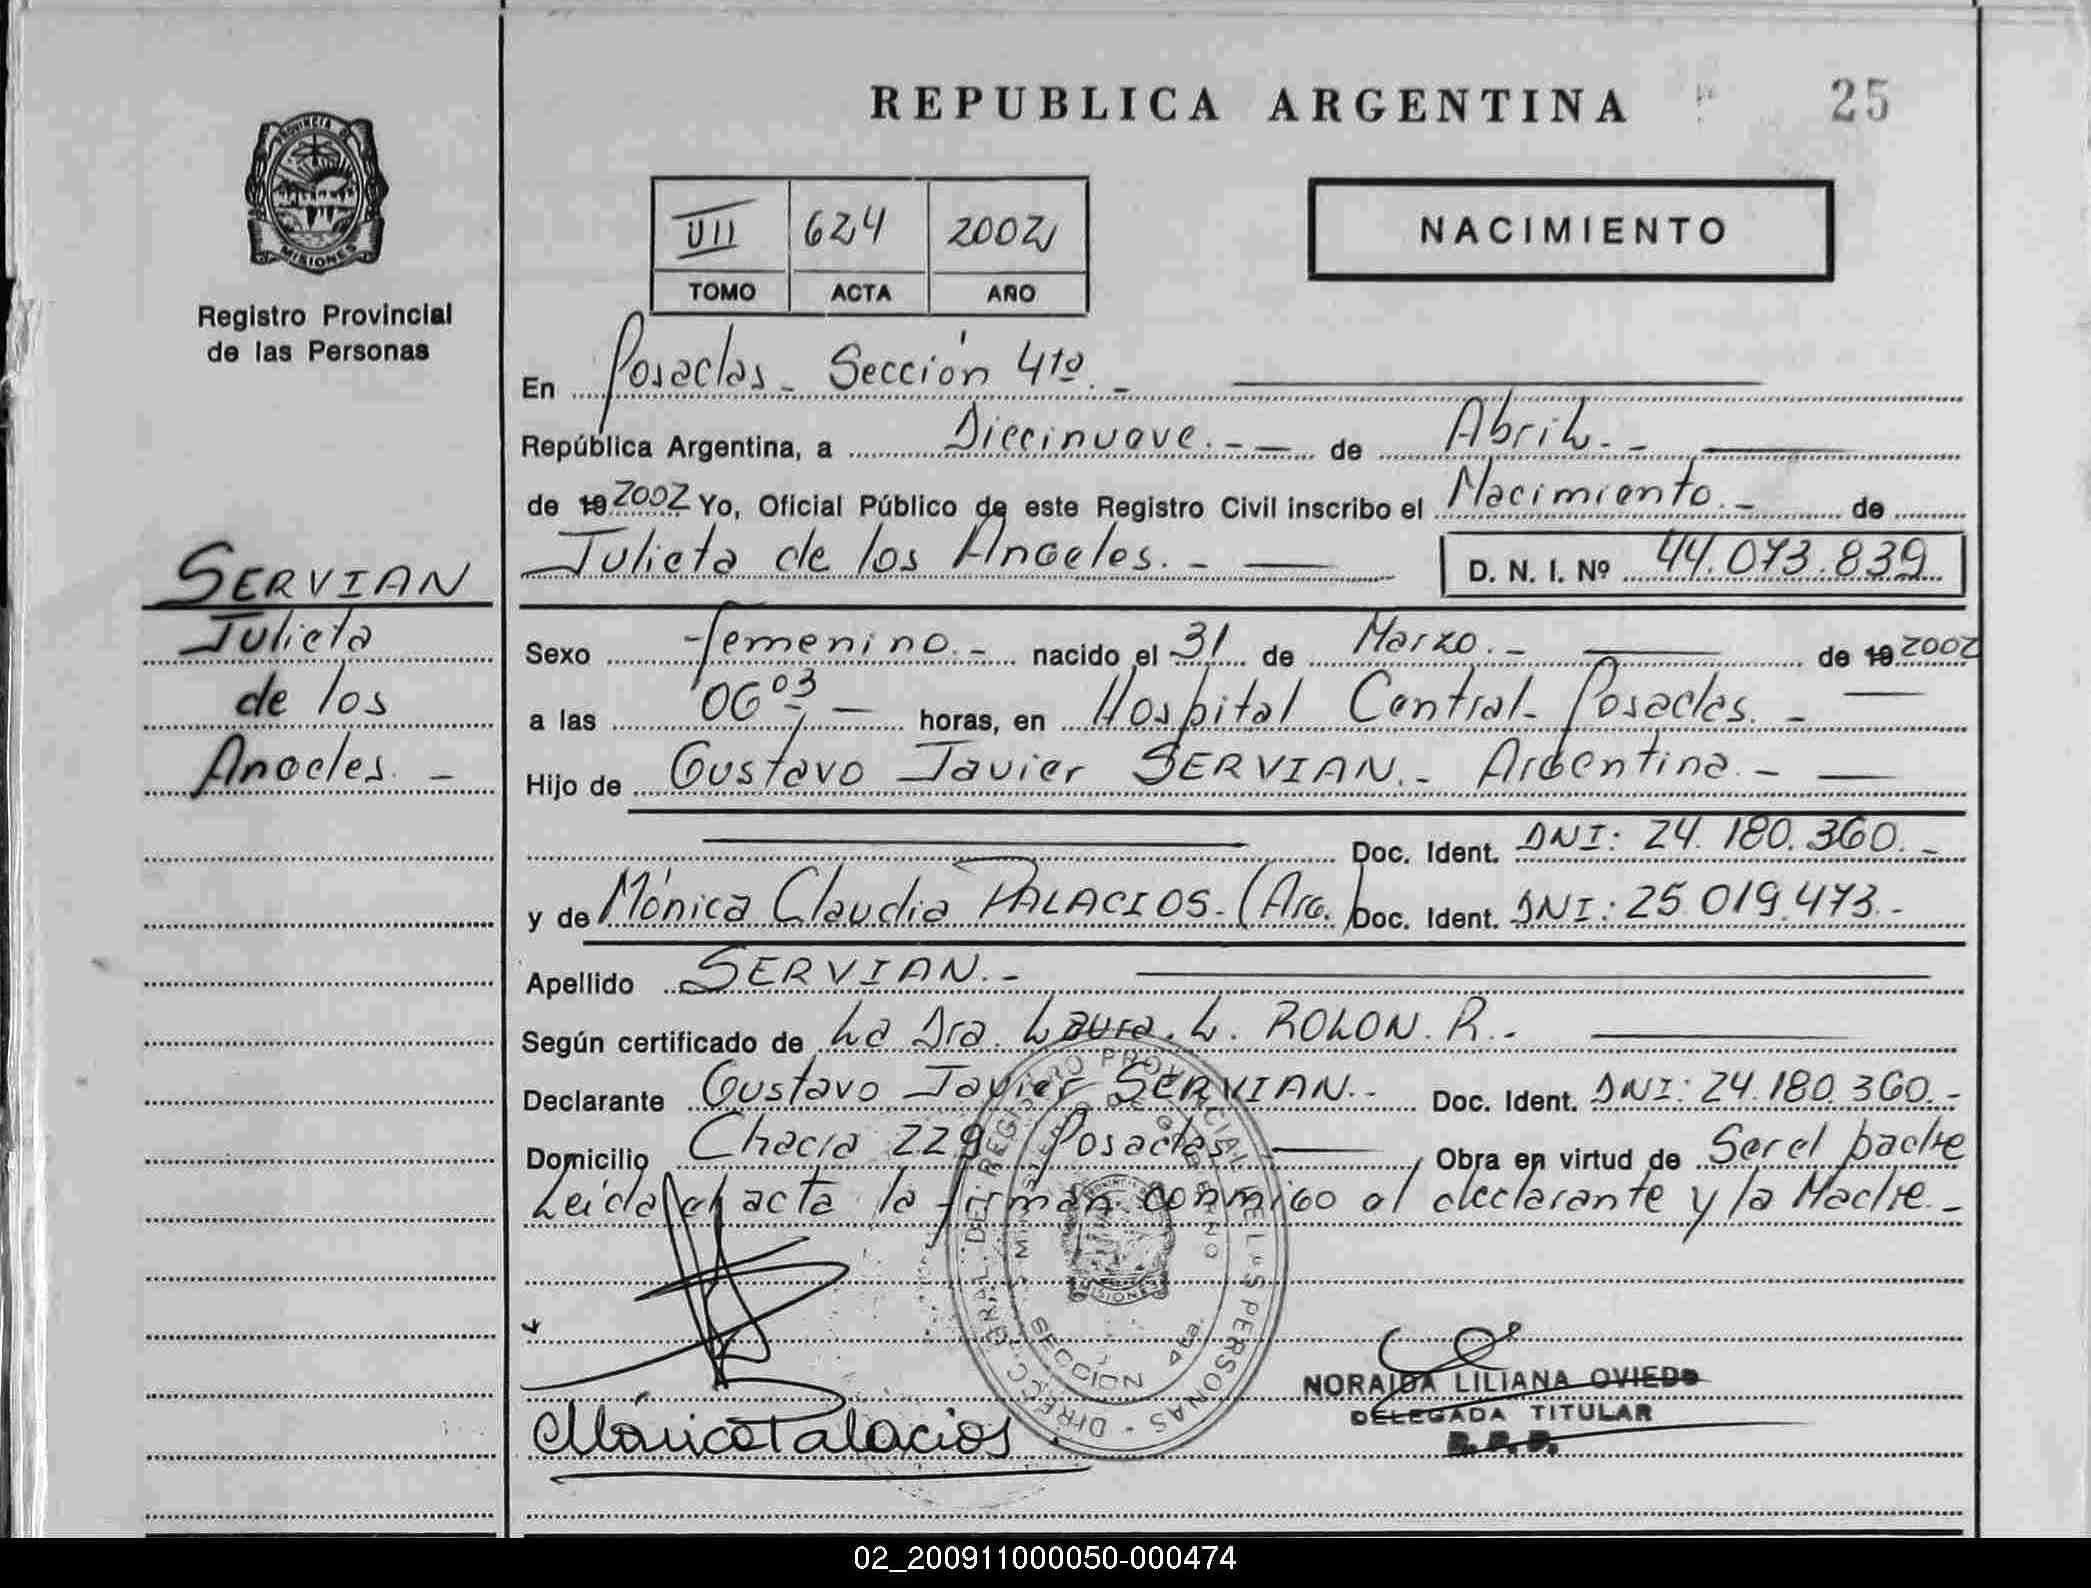 REPUBLICA ARGENTINA
25
PROVINCIA DE
MISIONES
Registro Provincial
de las Personas
VII 624 2002
TOMO ACTA AÑO
NACIMIENTO
En Posadas - Sección 4ta. -
República Argentina, a Diecinueve. - de Abril. -
de 19 2002 Yo, Oficial Público de este Registro Civil inscribo el Nacimiento. - de
Julieta de los Angeles. - D. N. I. Nº 44.073.839
SERVIAN
Julieta
de los
Angeles. -
Sexo femenino. - nacido el 31 de Marzo. - de 19 2002
a las 06 03 - horas, en Hospital Central - Posadas. -
Hijo de Gustavo Javier SERVIAN. - Argentina. -
Doc. Ident. DNI: 24.180.360. -
y de Mónica Claudia PALACIOS. (Arg.) Doc. Ident. DNI: 25.019.473. -
Apellido SERVIAN. -
Según certificado de La Dra. Laura. L. ROLON. R. -
Declarante Gustavo Javier SERVIAN. - Doc. Ident. DNI: 24.180.360. -
Domicilio Chacra 229 Posadas Obra en virtud de Ser el padre
Leida el acta la firman conmigo el declarante y la Madre. -
DIRECC. GRAL. DEL REGISTRO PROVINCIAL DE LAS PERSONAS
MINISTERIO DE GOBIERNO
MISIONES
SECCION 4ta.
Mónica Palacios
NORAIDA LILIANA OVIEDO
DELEGADA TITULAR
R. P. P.
02_200911000050-000474